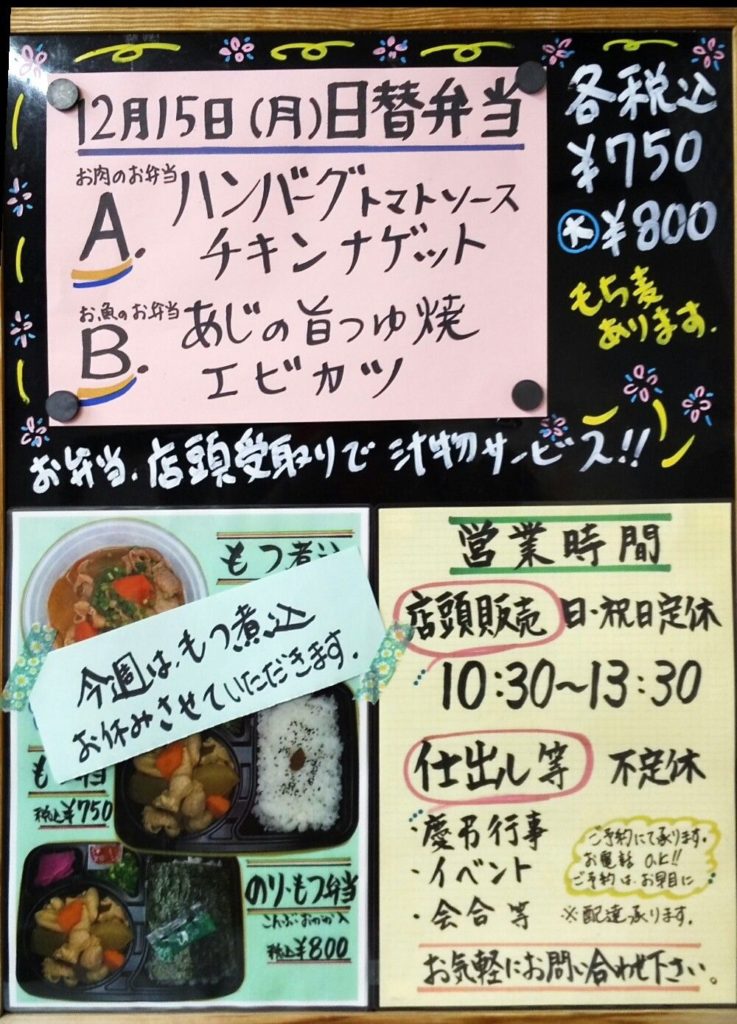 12月15日(月)日替弁当
お肉のお弁当
A. ハンバーグトマトソース
チキンナゲット
お魚のお弁当
B. あじの旨つゆ焼
エビカツ
各税込
¥750
大 ¥800
もち麦
あります.
お弁当、店頭受取りで汁物サービス!!
もつ煮込
今週は、もつ煮込
お休みさせていただきます.
税込¥750
のり・もつ弁当
こんぶ・おかか入
税込¥800
営業時間
店頭販売 日・祝日定休
10:30~13:30
仕出し等 不定休
・慶弔行事
・イベント
・会合等
ご予約にて承ります.
お電話OK!!
ご予約は、お早目に
※配達承ります.
お気軽にお問い合わせ下さい。